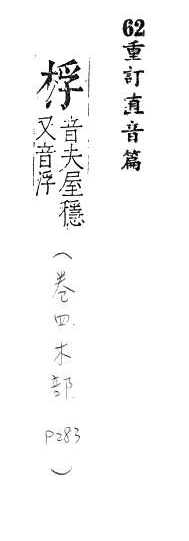 62重訂直音篇
桴
音夫屋穩
又音浮
(卷四木部 P283)